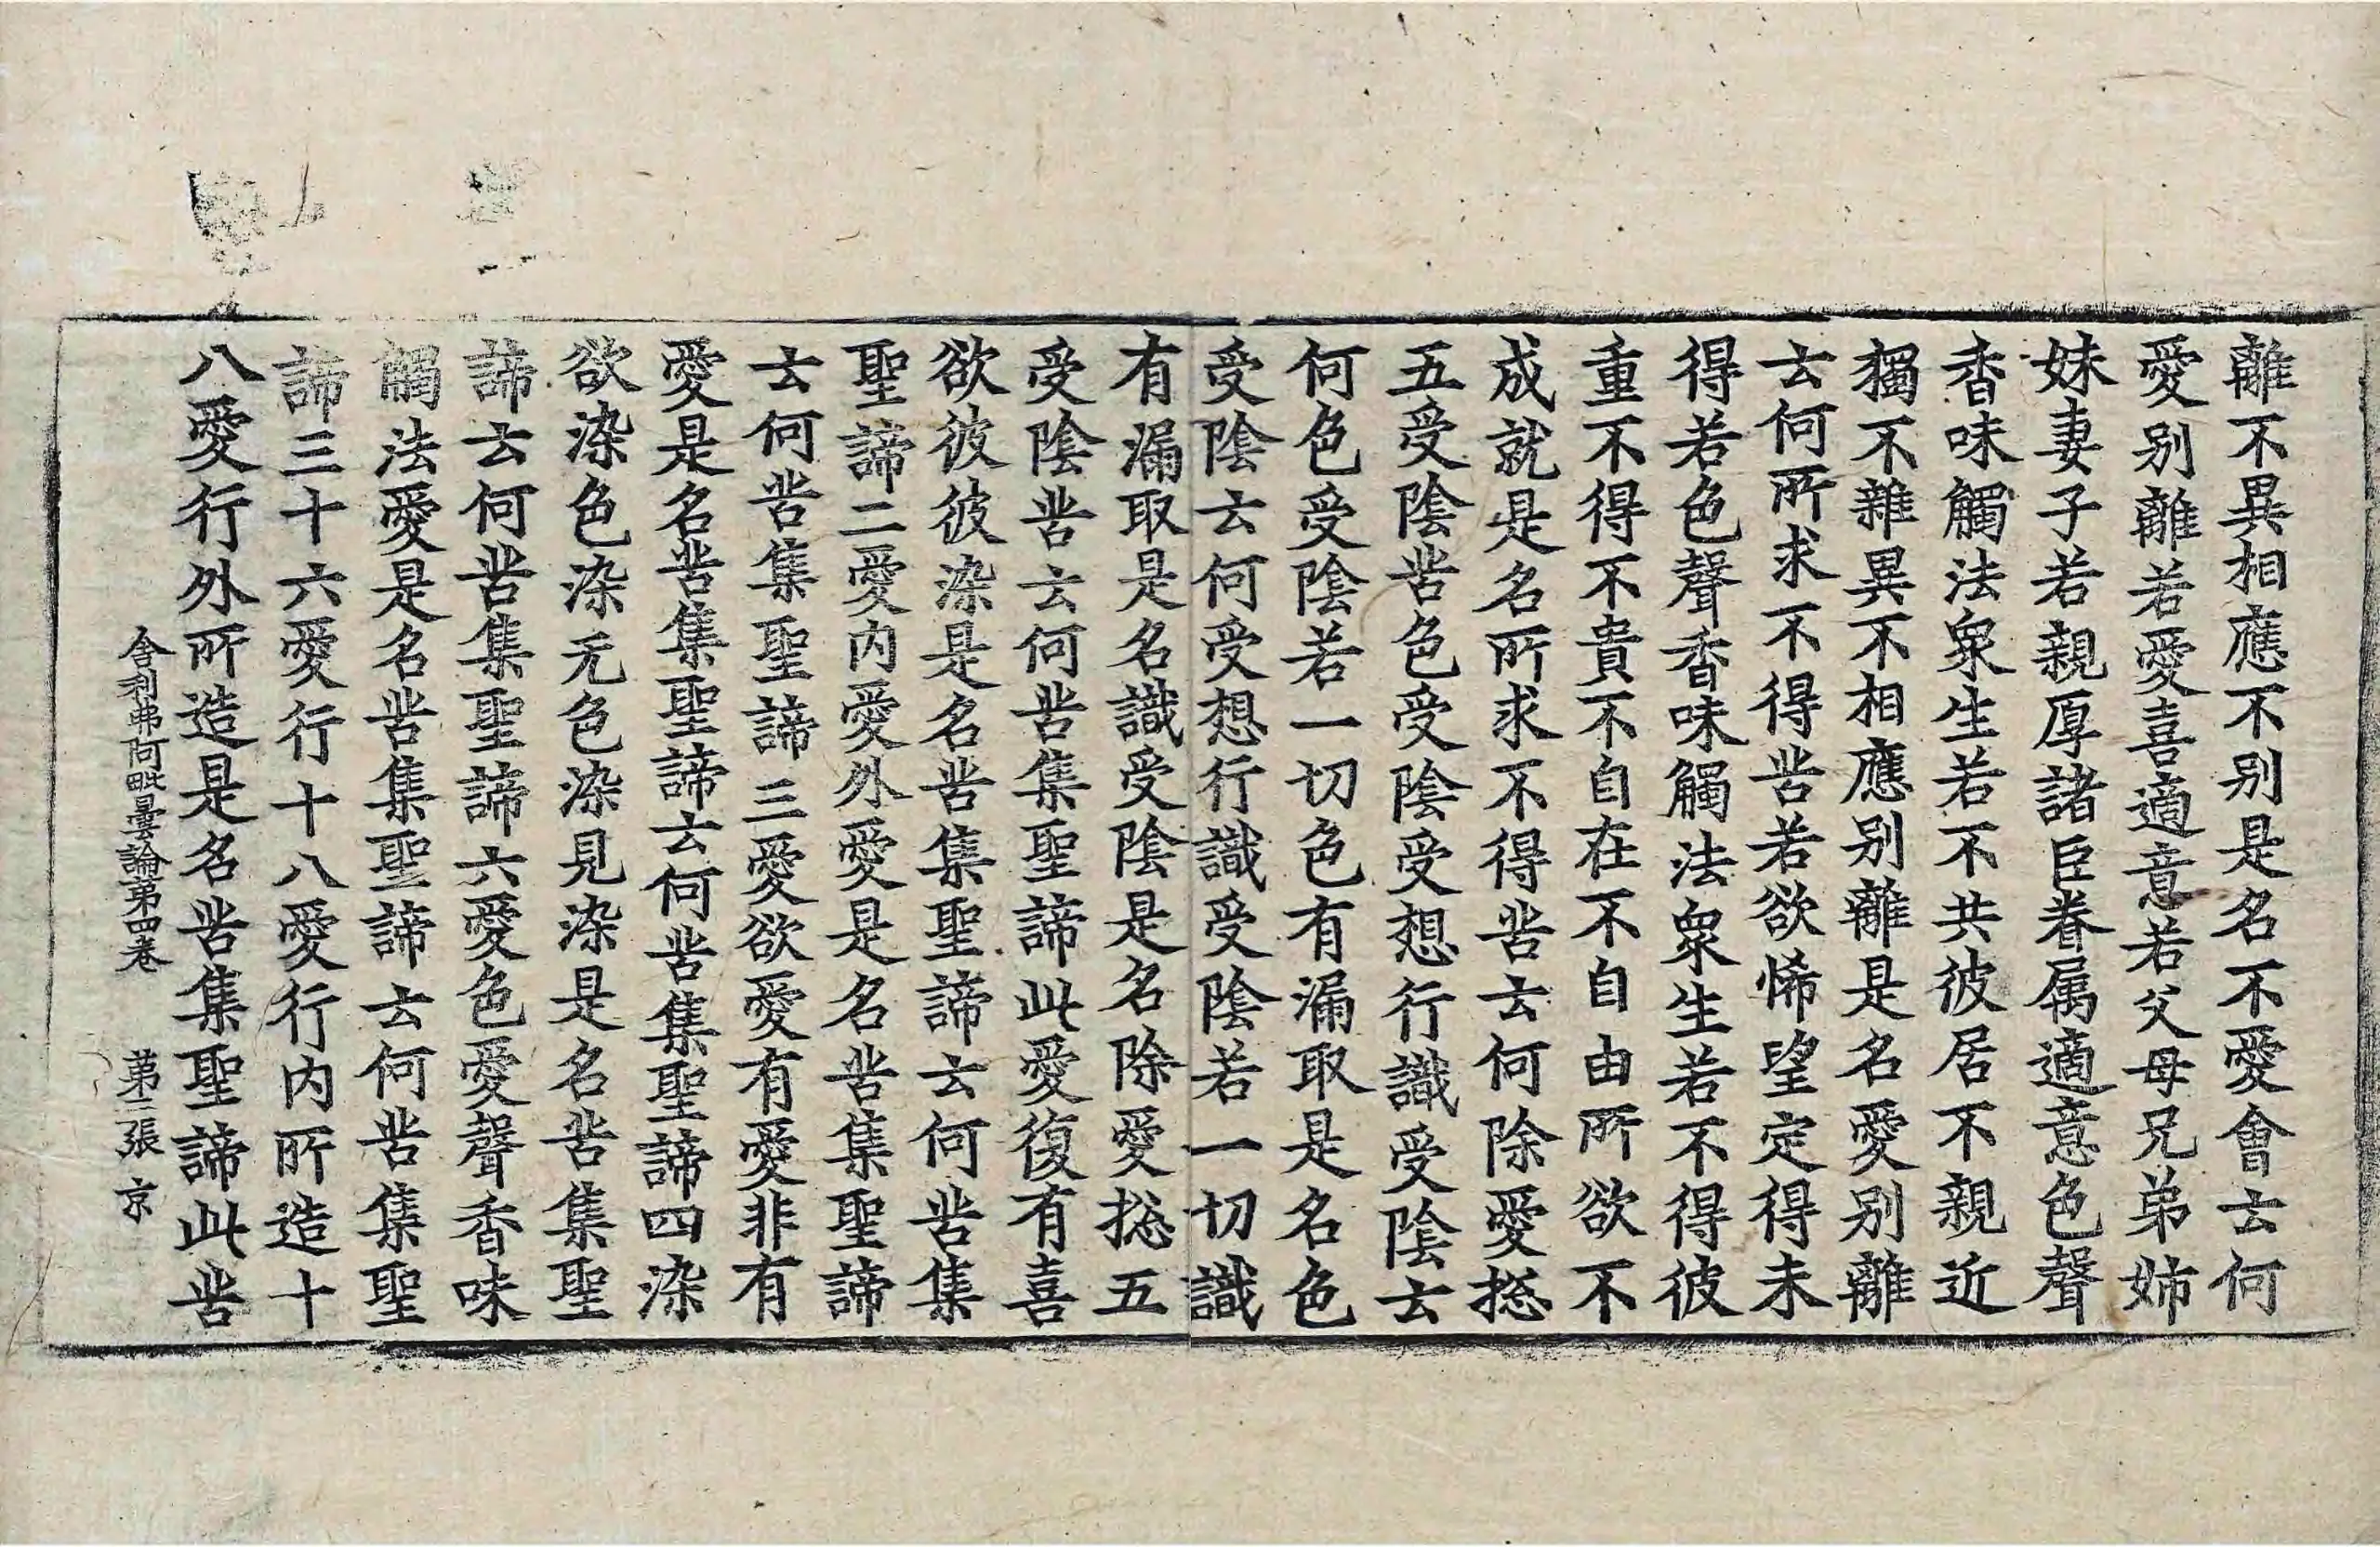 離不異相應不别是名不愛會云何
愛别離若愛喜適意若父母兄弟姉
妹妻子若親厚諸臣眷属適意色聲
香味觸法衆生若不共彼居不親近
獨不雜異不相應别離是名愛别離
云何所求不得苦若欲悕望定得未
得若色聲香味觸法衆生若不得彼
重不得不貴不自在不自由所欲不
成就是名所求不得苦云何除愛捴
五受陰苦色受陰受想行識受陰云
何色受陰若一切色有漏取是名色
受陰云何受想行識受陰若一切識
有漏取是名識受陰是名除愛捴五
受陰苦云何苦集聖諦此愛復有喜
欲彼彼染是名苦集聖諦云何苦集
聖諦二愛内愛外愛是名苦集聖諦
云何苦集聖諦三愛欲愛有愛非有
愛是名苦集聖諦云何苦集聖諦四染
欲染色染无色染見染是名苦集聖
諦云何苦集聖諦六愛色愛聲香味
觸法愛是名苦集聖諦云何苦集聖
諦三十六愛行十八愛行内所造十
八愛行外所造是名苦集聖諦此苦
舎利弗阿毗曇論第四卷 第二張 京